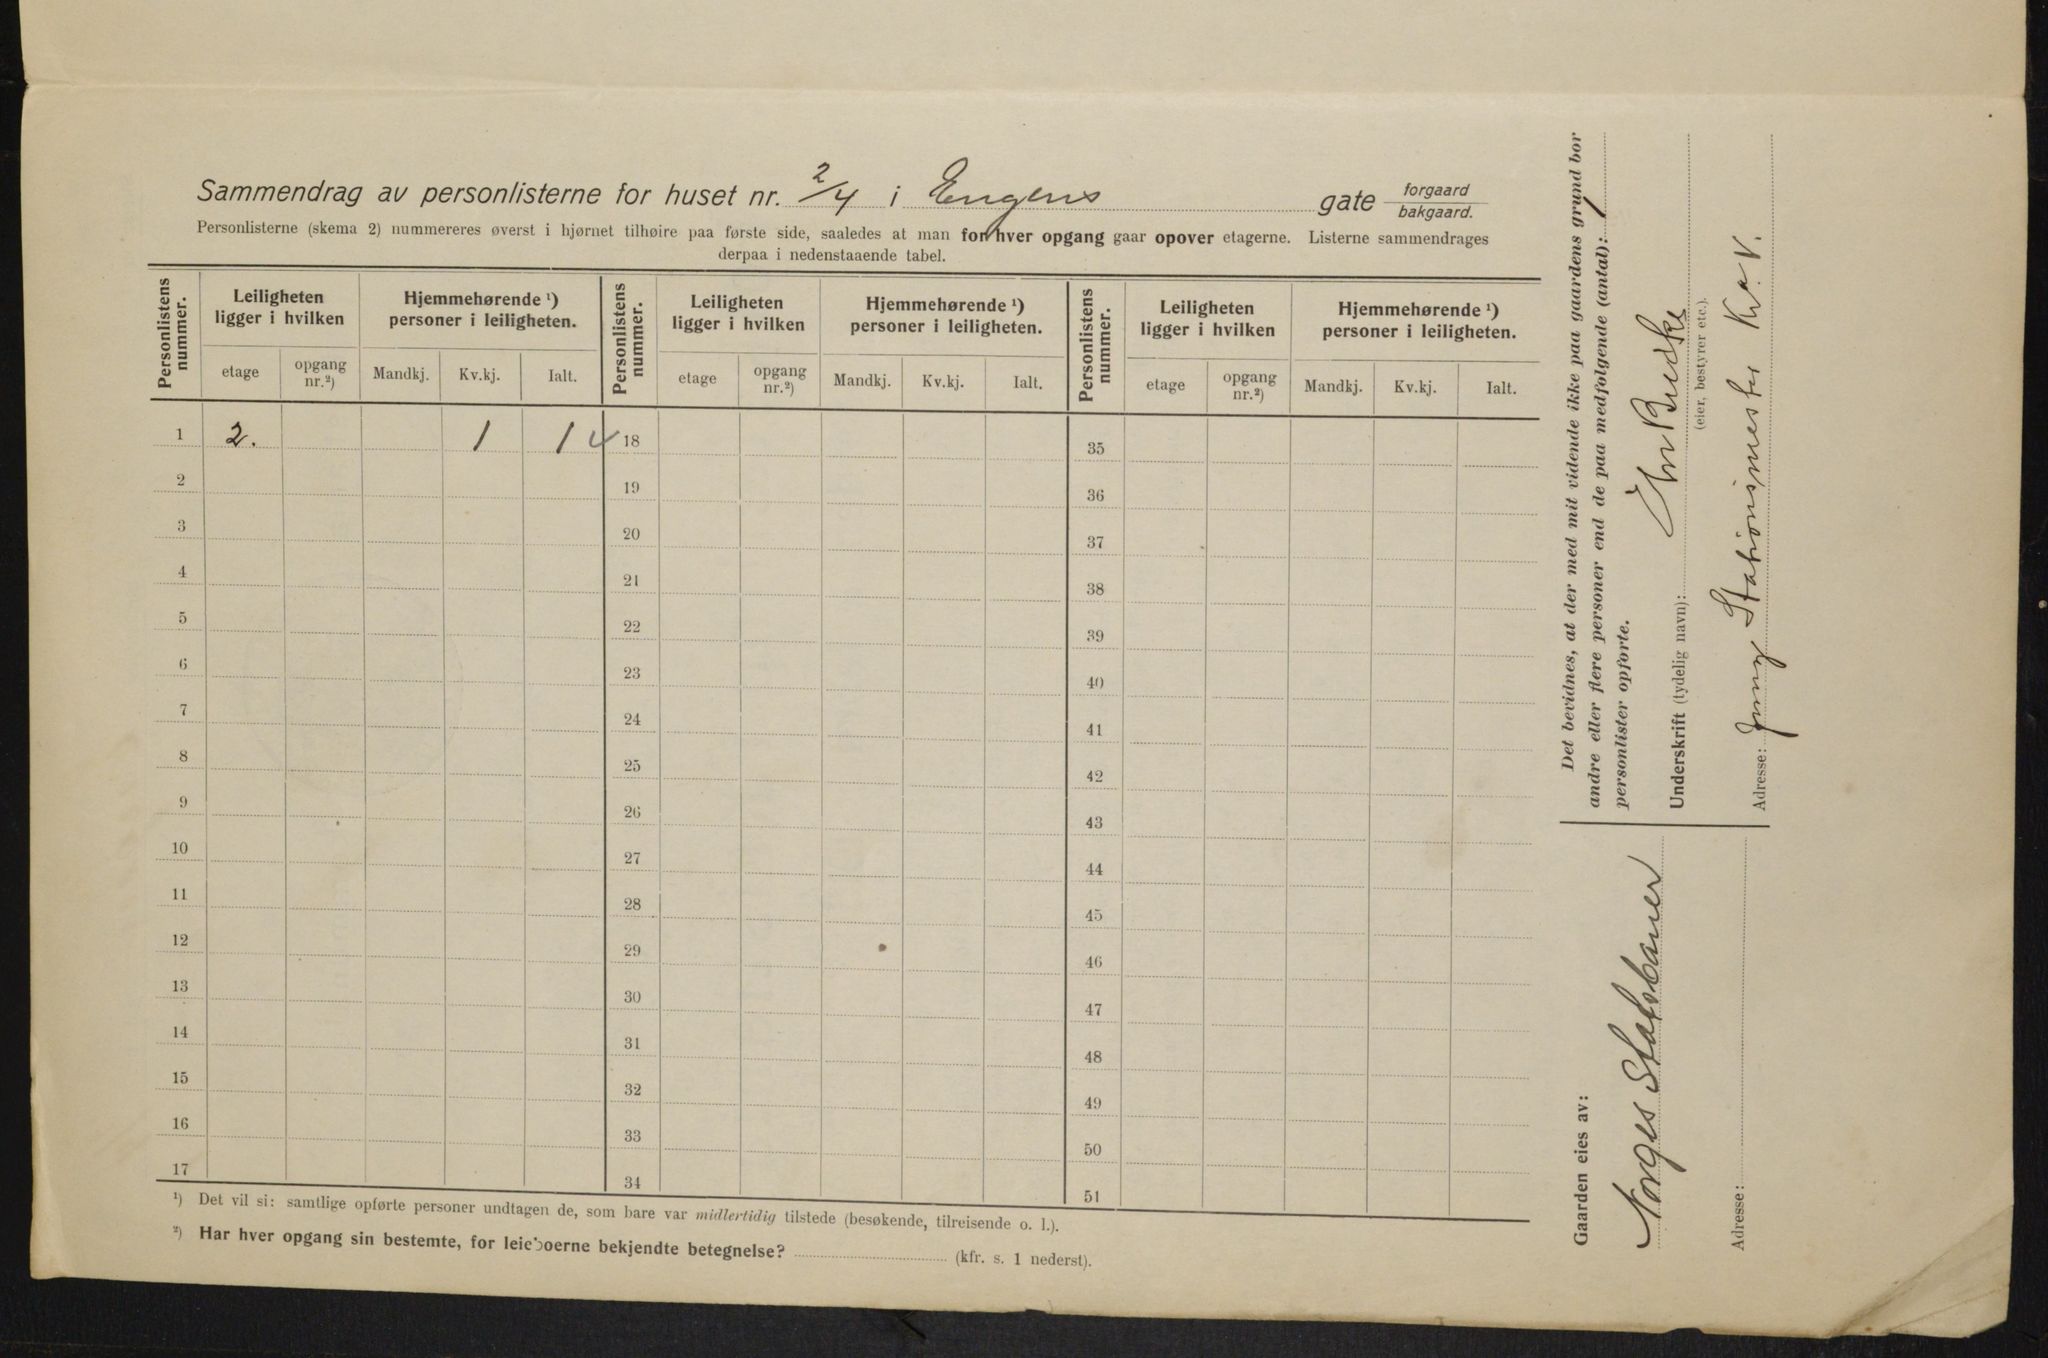 Sammendrag av personlisterne for huset nr. 2/4 i Engens gate forgaard/bakgaard.
Personlisterne (skema 2) nummereres øverst i hjørnet tilhøire paa første side, saaledes at man for hver opgang gaar opover etagerne. Listerne sammendrages
derpaa i nedenstaaende tabel.
Personlistens nummer. Leiligheten ligger i hvilken Hjemmehørende ¹) personer i leiligheten. Personlistens nummer. Leiligheten ligger i hvilken Hjemmehørende ¹) personer i leiligheten. Personlistens nummer. Leiligheten ligger i hvilken Hjemmehørende ¹) personer i leiligheten.
etage opgang nr.²) Mandkj. Kv.kj. Ialt. etage opgang nr.²) Mandkj. Kv.kj. Ialt. etage opgang nr.²) Mandkj. Kv.kj. Ialt.
1 2. 1 1 18 35
2 19 36
3 20 37
4 21 38
5 22 39
6 23 40
7 24 41
8 25 42
9 26 43
10 27 44
11 28 45
12 29 46
13 30 47
14 31 48
15 32 49
16 33 50
17 34 51
¹) Det vil si: samtlige opførte personer undtagen de, som bare var midlertidig tilstede (besøkende, tilreisende o. l.).
²) Har hver opgang sin bestemte, for leieboerne bekjendte betegnelse? (kfr. s. 1 nederst).
Det bevidnes, at der med mit vidende ikke paa gaardens grund bor
andre eller flere personer end de paa medfølgende (antal): 1
personlister opførte.
Underskrift (tydelig navn):
(eier, bestyrer etc.).
Adresse: Stationsmester K.V.
Gaarden eies av:
Norges Statsbaner
Adresse: